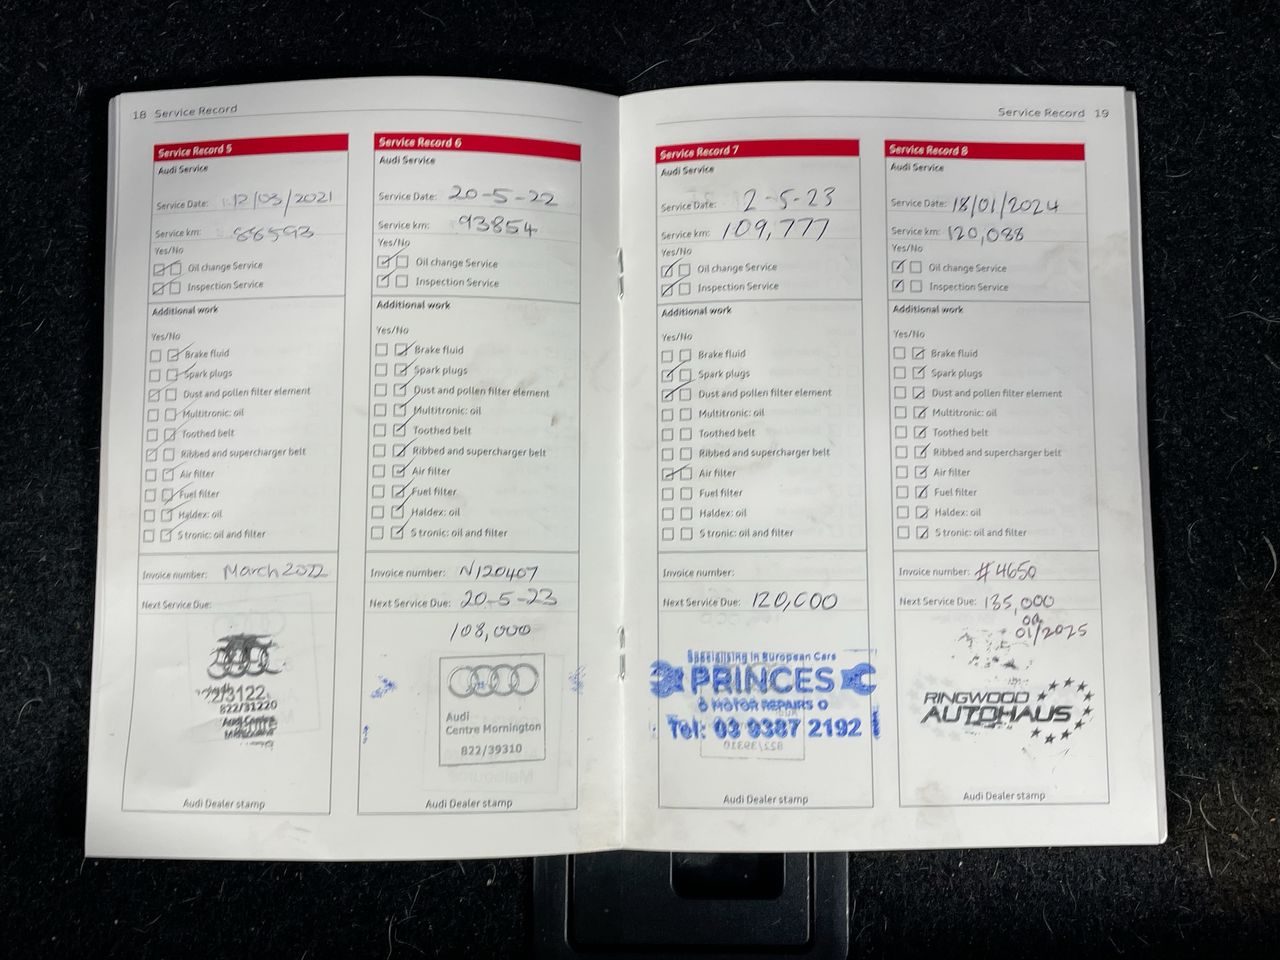 18 Service Record
Service Record 5
Audi Service
Service Date: 12/03/2021
Service km: 88593
Yes/No
Oil change Service
Inspection Service
Additional work
Yes/No
Brake fluid
Spark plugs
Dust and pollen filter element
Multitronic: oil
Toothed belt
Ribbed and supercharger belt
Air filter
Fuel filter
Haldex: oil
S tronic: oil and filter
Invoice number: March 2022
Next Service Due:
822/31220
Audi Dealer stamp
Service Record 6
Audi Service
Service Date: 20-5-22
Service km: 93854
Yes/No
Oil change Service
Inspection Service
Additional work
Yes/No
Brake fluid
Spark plugs
Dust and pollen filter element
Multitronic: oil
Toothed belt
Ribbed and supercharger belt
Air filter
Fuel filter
Haldex: oil
S tronic: oil and filter
Invoice number: N120407
Next Service Due: 20-5-23
108,000
Audi
Centre Mornington
822/39310
Audi Dealer stamp
Service Record 19
Service Record 7
Audi Service
Service Date: 2-5-23
Service km: 109,777
Yes/No
Oil change Service
Inspection Service
Additional work
Yes/No
Brake fluid
Spark plugs
Dust and pollen filter element
Multitronic: oil
Toothed belt
Ribbed and supercharger belt
Air filter
Fuel filter
Haldex: oil
S tronic: oil and filter
Invoice number:
Next Service Due: 120,000
Specialising in European Cars
PRINCES
MOTOR REPAIRS
Tel: 03 9387 2192
Audi Dealer stamp
Service Record 8
Audi Service
Service Date: 18/01/2024
Service km: 120,088
Yes/No
Oil change Service
Inspection Service
Additional work
Yes/No
Brake fluid
Spark plugs
Dust and pollen filter element
Multitronic: oil
Toothed belt
Ribbed and supercharger belt
Air filter
Fuel filter
Haldex: oil
S tronic: oil and filter
Invoice number: #4650
Next Service Due: 135,000
OR
01/2025
RINGWOOD
AUTOHAUS
Audi Dealer stamp